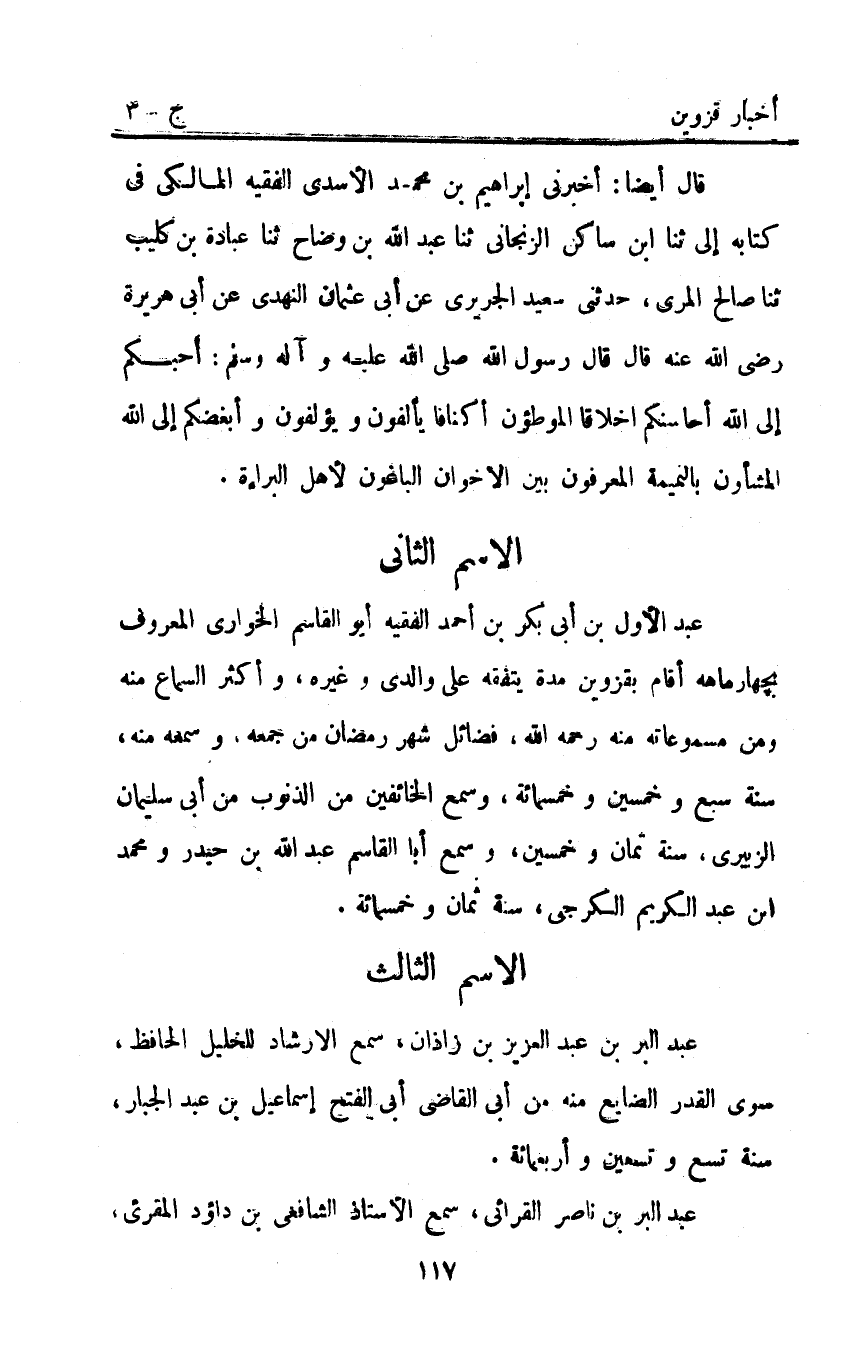 أخبار قزوين ج - ٣
قال أيضا: أخبرنى إبراهيم بن محمد الأسدى الفقيه المالكى فى
كتابه إلى ثنا ابن ساكن الزنجانى ثنا عبد الله بن وضاح ثنا عبادة بن كليب
ثنا صالح المرى، حدثنى سعيد الجريرى عن أبى عثمان النهدى عن أبى هريرة
رضى الله عنه قال قال رسول الله صلى الله عليه و آله وسلم: أحبكم
إلى الله أحاسنكم اخلاقا الموطؤن أكنافا يألفون و يؤلفون و أبغضكم إلى الله
المشأون بالنميمة المعرفون بين الاخوان الباغون لأهل البراءة .
الاسم الثانى
عبد الأول بن أبى بكر بن أحمد الفقيه أبو القاسم الخوارى المعروف
بچهارماهه أقام بقزوين مدة يتفقه على والدى و غيره، و أكثر السماع منه
ومن مسموعاته منه رحمه الله، فضائل شهر رمضان من جمعه، و سمعه منه،
سنة سبع و خمسين و خمسمائة، وسمع الخائفين من الذنوب من أبى سليمان
الزبيرى، سنة ثمان و خمسين، و سمع أبا القاسم عبد الله بن حيدر و محمد
ابن عبد الكريم الكرجى، سنة ثمان و خمسمائة .
الاسم الثالث
عبد البر بن عبد العزيز بن زاذان، سمع الارشاد للخليل الحافظ،
سوى القدر الضايع منه من أبى القاضى أبى الفتح إسماعيل بن عبد الجبار،
سنة تسع و تسعين و أربعمائة .
عبد البر بن ناصر القرائى، سمع الأستاذ الشافعى بن داؤد المقرئ،
١١٧